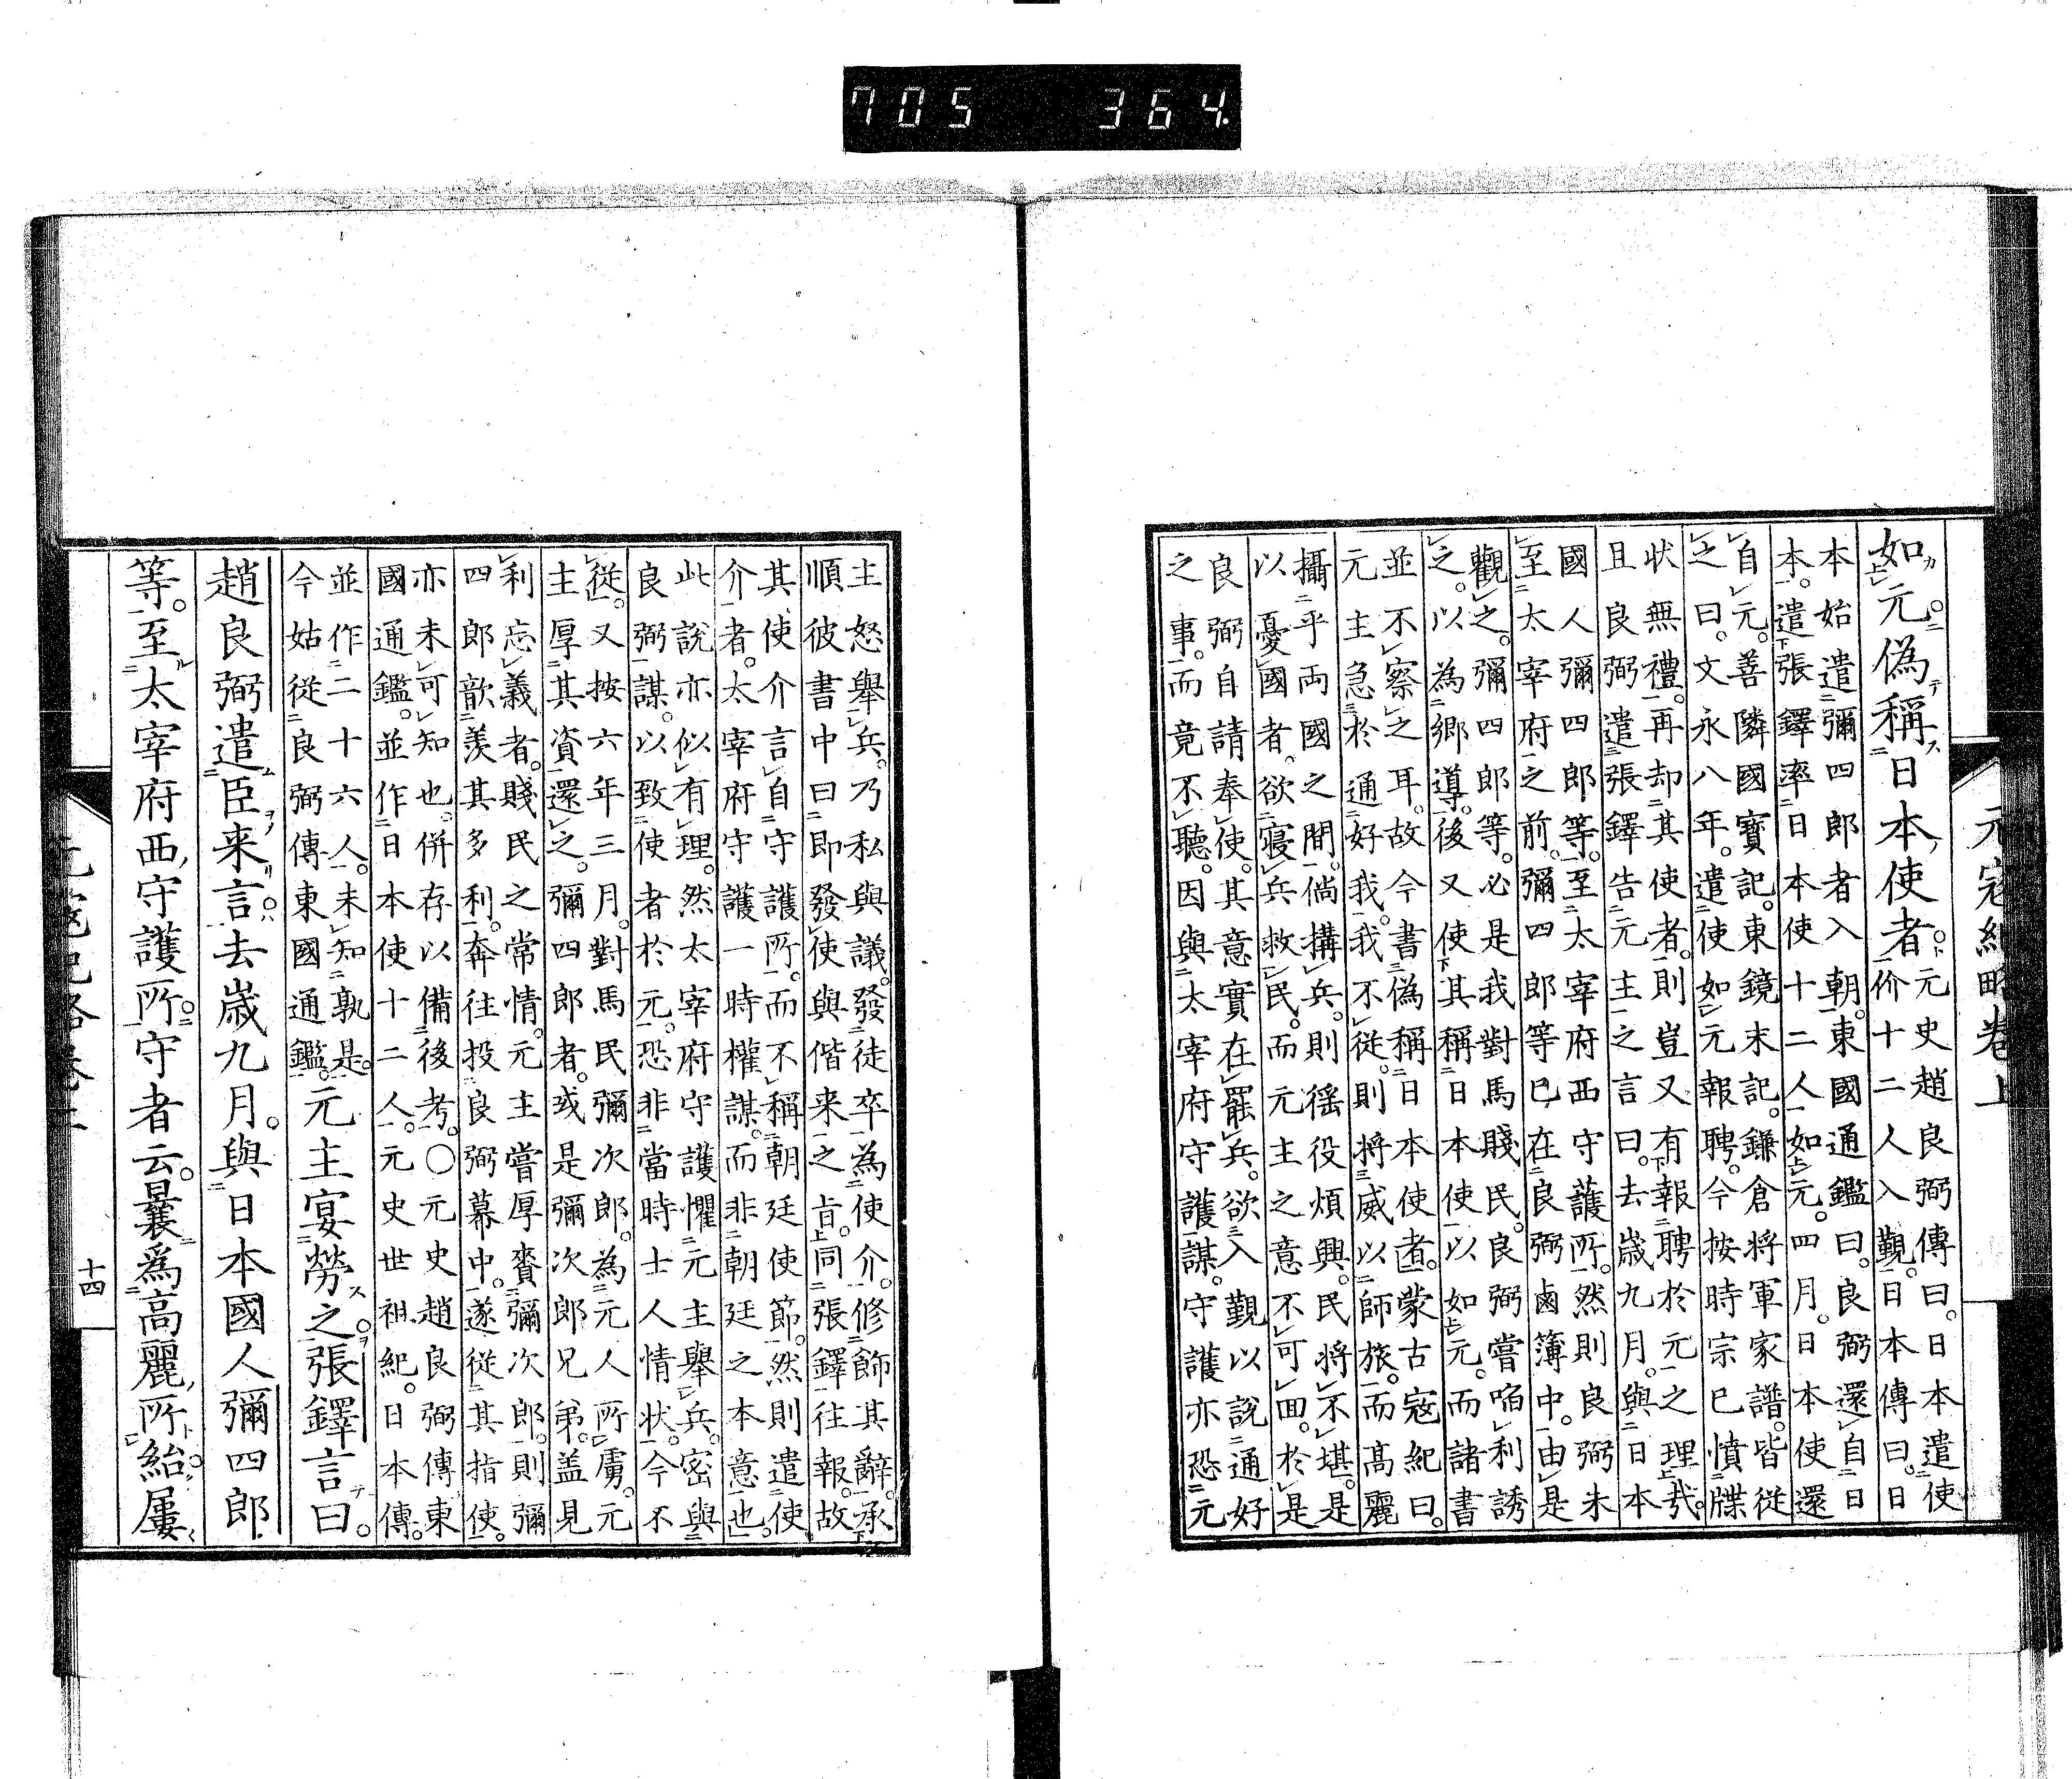 元寇紀略卷上
如元偽稱日本使者
元史趙良弼傳曰。日本遣使
价十二人入覲。日本傳曰。日
本始遣彌四郎者入朝。東國通鑑曰。良弼還自日
本。遣張鐸率日本使十二人如元。四月。日本使還
自元。善隣國寶記。東鏡末記。鎌倉將軍家譜。皆從
之曰。文永八年。遣使如元報聘。今按時宗已憤牒
狀無禮。再却其使者。則豈又有報聘於元之理哉。
且良弼遣張鐸告元主之言曰。去歲九月。與日本
國人彌四郎等。至太宰府西守護所。然則良弼未
至太宰府之前。彌四郎等已在良弼鹵簿中。由是
觀之。彌四郎等。必是我對馬賤民。良弼嘗啗利誘
之。以為鄉導。後又使其稱日本使以如元。而諸書
並不察之耳。故今書偽稱日本使者。蒙古寇紀曰。
元主急於通好我。我不從。則將威以師旅。而高麗
攝乎兩國之間。倘搆兵。則徭役煩興。民將不堪。是
以憂國者。欲寢兵救民。而元主之意不可回。於是
良弼自請奉使。其意實在罷兵。欲入覲以説通好
之事。而竟不聽。因與太宰府守護謀。守護亦恐元
主怒舉兵。乃私與議。發徒卒為使介。修飾其辭。承
順彼書中曰即發使與偕来之旨。同張鐸往報。故
其使介言自守護所。而不稱朝廷使節。然則遣使
介者。太宰府守護一時權謀。而非朝廷之本意也。
此說亦似有理。然太宰府守護懼元主舉兵。密與
良弼謀。以致使者於元。恐非當時士人情状。今不
從。又按六年三月。對馬民彌次郎。為元人所虜。元
主厚其資還之。彌四郎者。或是彌次郎兄弟。蓋見
利忘義者。賤民之常情。元主嘗厚賚彌次郎。則彌
四郎歆羨其多利。奔往投良弼幕中。遂從其指使。
亦未可知也。併存以備後考。〇元史趙良弼傳東
國通鑑。並作日本使十二人。元史世祖紀。日本傳。
並作二十六人。未知孰是。
今姑從良弼傳東國通鑑。
元主宴勞之。張鐸言曰。
趙良弼遣臣来言。去歲九月。與日本國人彌四郎
等。至太宰府西守護所。守者云。曩爲高麗所紿。屢
十四